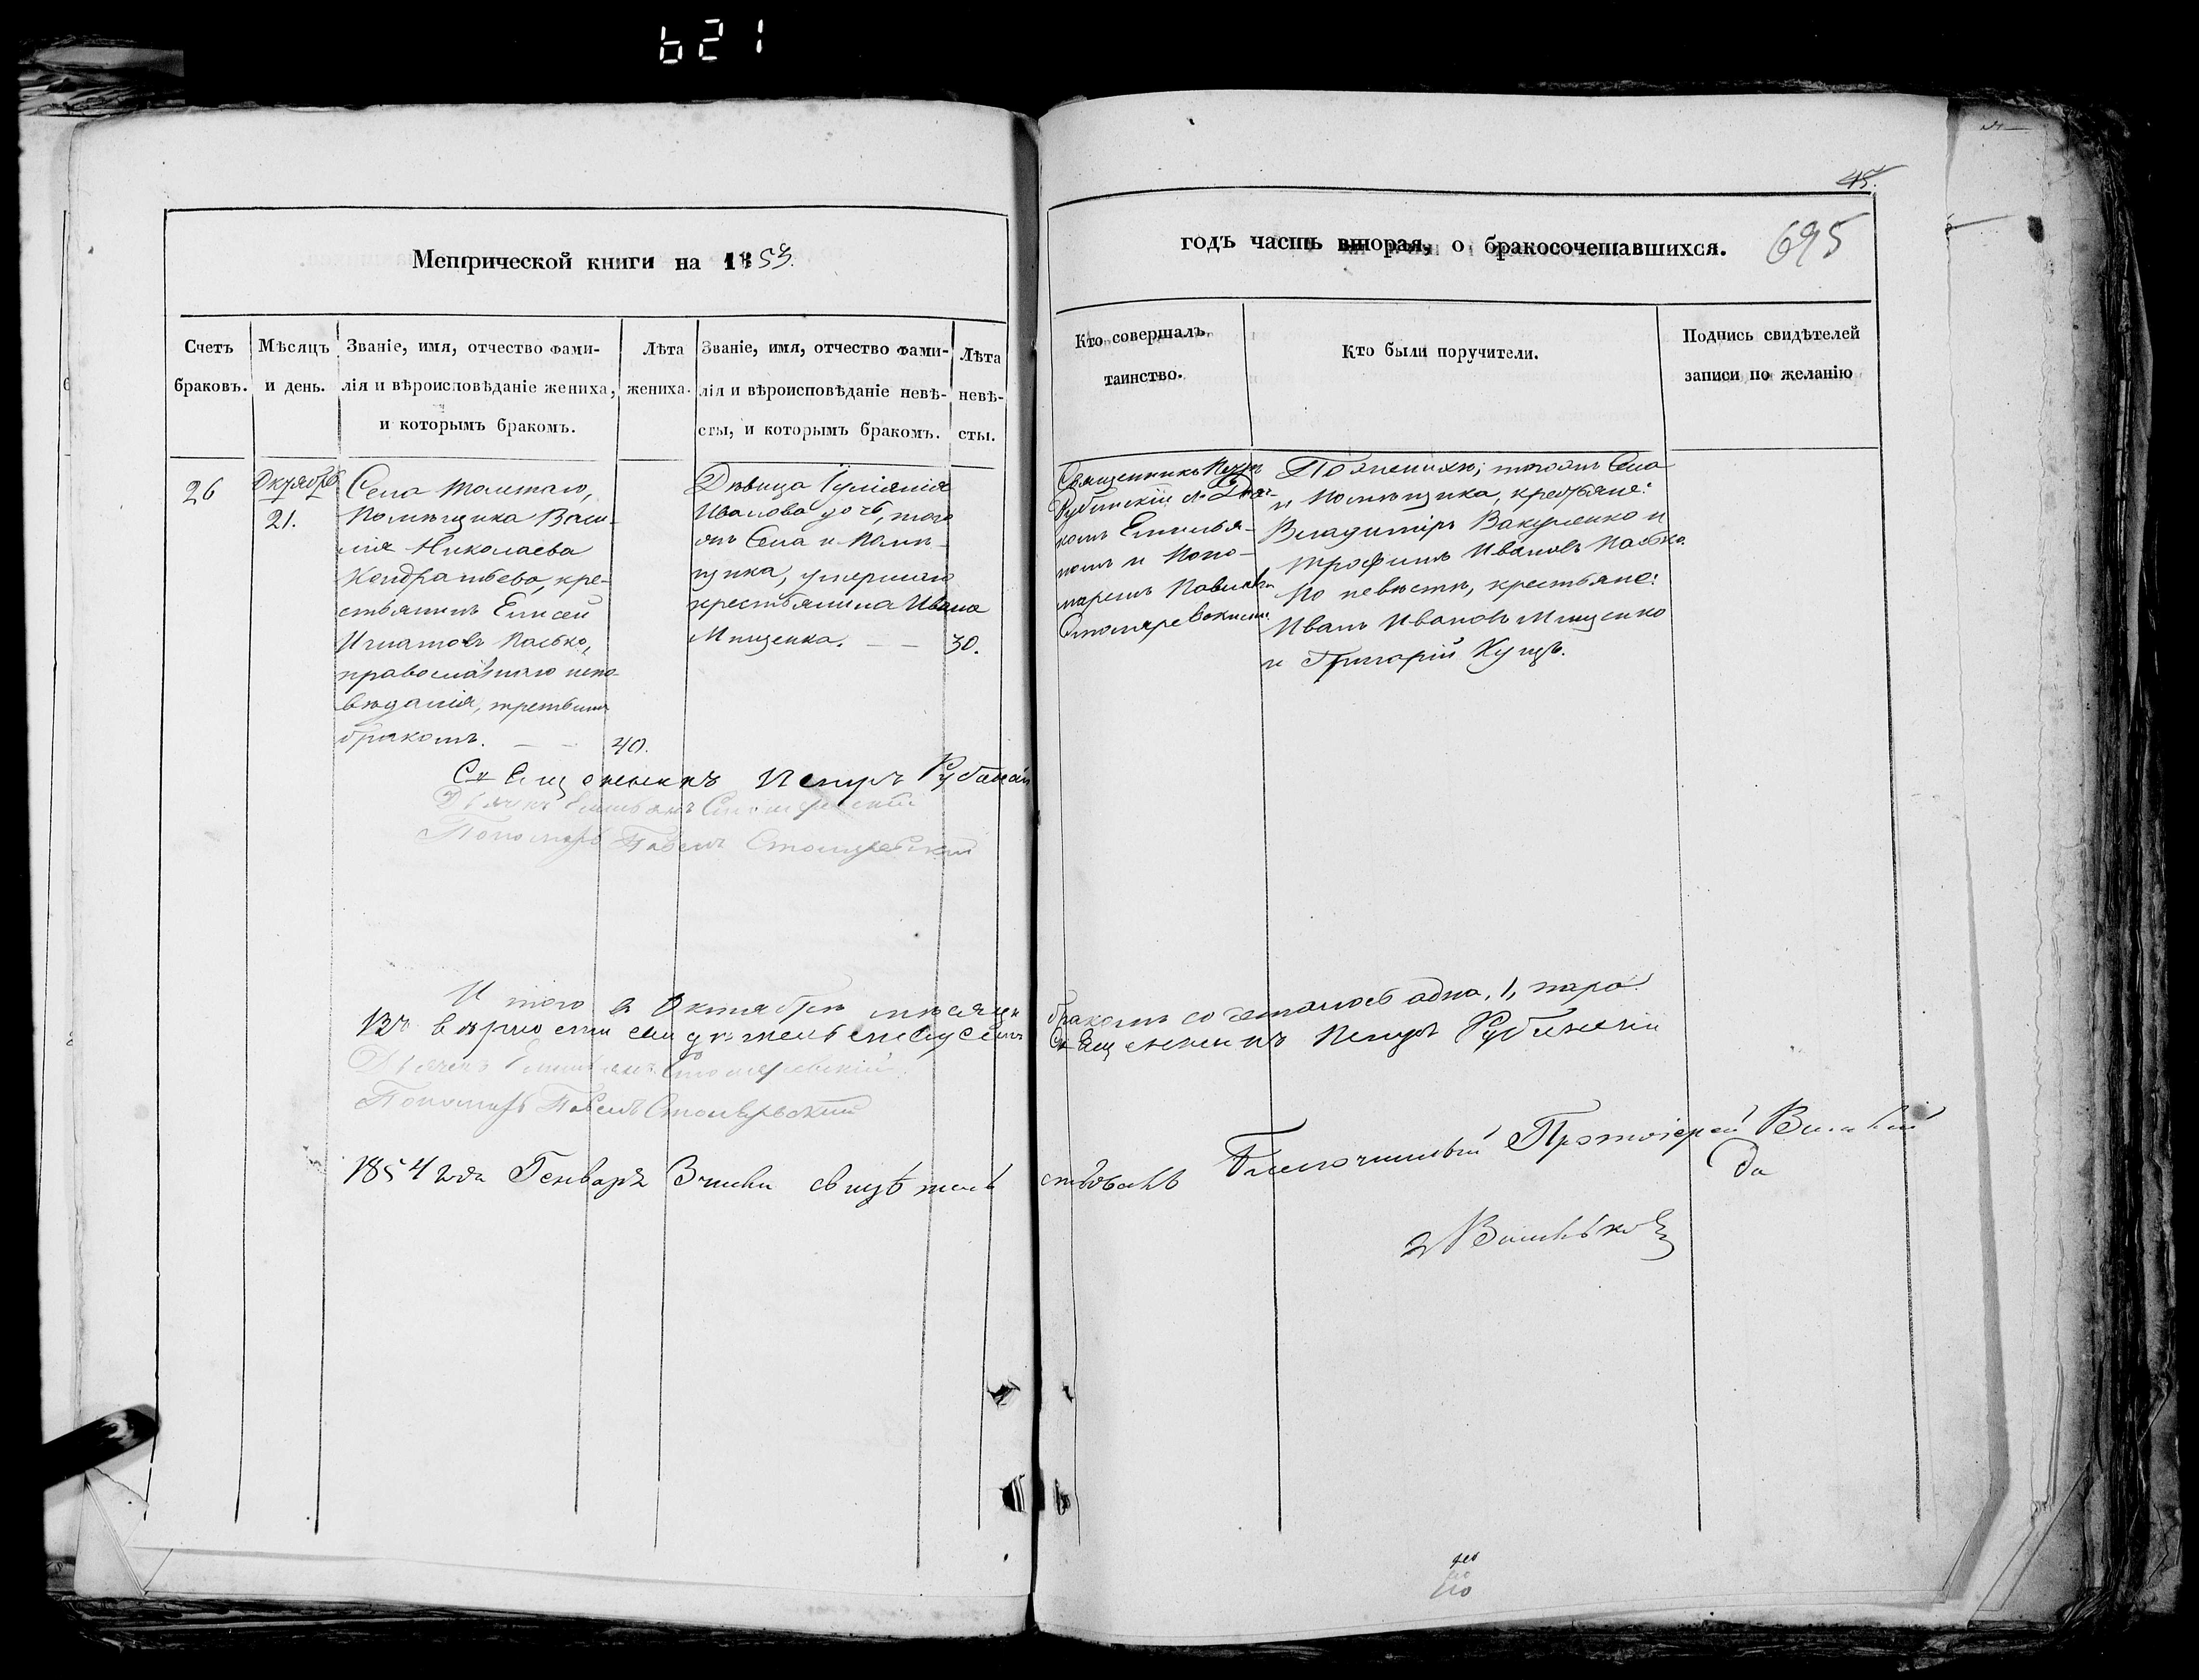 621
45.
Метрической книги на 1853.
годъ часть вторая, о бракосочетавшихся.
695
Счетъ браковъ.
Мѣсяцъ и день.
Званіе, имя, отчество фами-
лія и вѣроисповѣданіе жениха,
и которымъ бракомъ.
Лѣта жениха.
Званіе, имя, отчество фами-
лія и вѣроисповѣданіе невѣ-
сты, и которымъ бракомъ.
Лѣта невѣ-
сты.
Кто совершалъ
таинство.
Кто были поручители.
Подпись свидѣтелей
записи по желанію
26
Октября
21.
Села Толстаго,
Помѣщика Васи-
лія Николаева
Кондратьева, кре-
стьянинъ Елисей
Игнатовъ Пасько,
православнаго испо-
вѣданія, третьимъ
бракомъ. — — 40.
Дѣвица Іуліанія
Иванова дочь, того
жъ Села и Помѣ-
щика, умершаго
крестьянина Ивана
Мищенка. — — 30.
Священникъ Петръ
Рубинскій съ Дьяч-
комъ Емилья-
номъ и Поно-
маремъ Павломъ
По женихѣ; тогожъ Села
и Помѣщика, крестьяне:
Владиміръ Вакуленко и
Трофимъ Ивановъ Пасько.
По невѣстѣ, крестьяне:
Иванъ Ивановъ Мищенко
и Григорій Куцъ.
Священникъ Петръ Рубинскій
Пономарь Павелъ
Итого в Октябрѣ мѣсяцѣ бракомъ сочеталось одна, 1, пара.
Въ вѣрности свидѣтельствуемъ Священникъ Петръ Рубинскій
Пономарь Павелъ
1854 года Генваря 3 свидѣтельствовалъ Благочинный Протоіерей